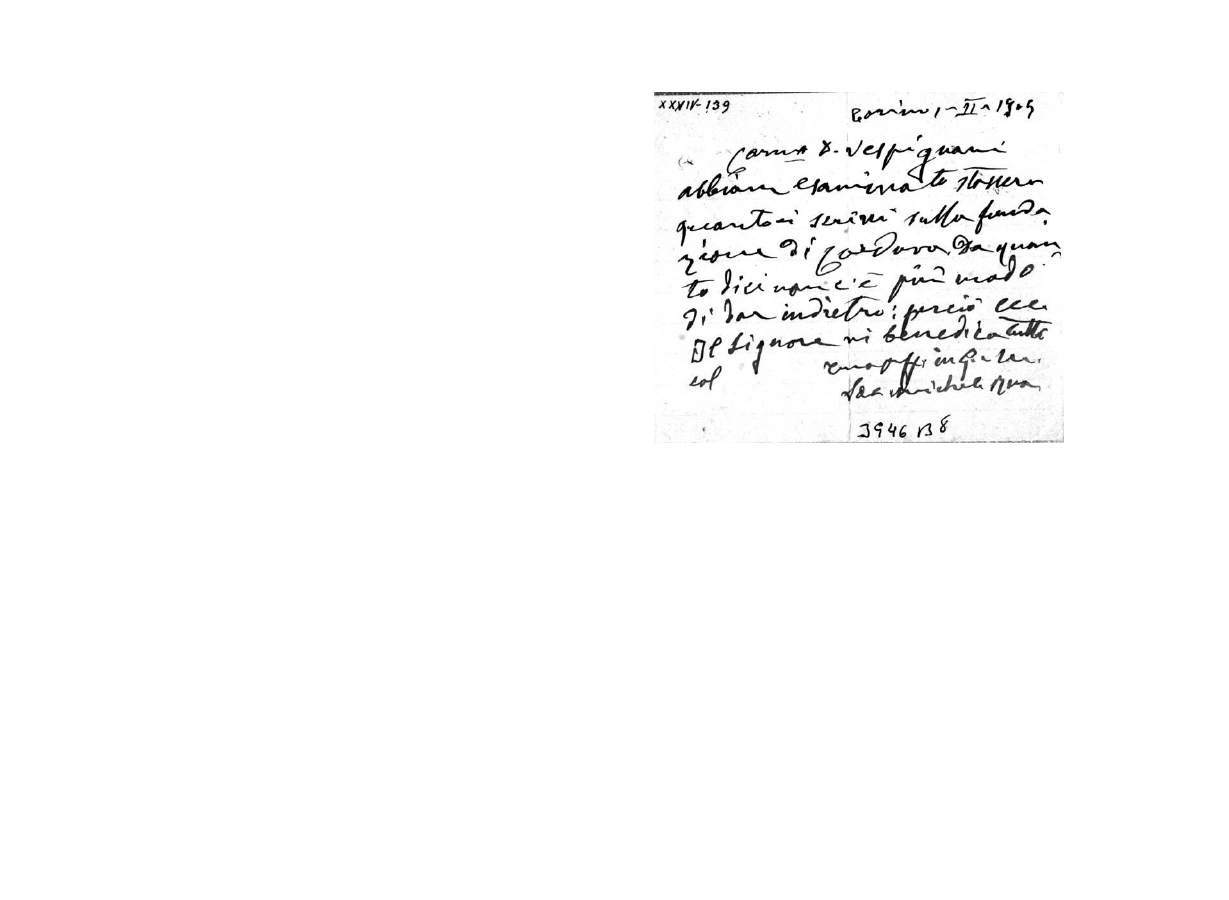 XXXIV-139
Torino, 1-II-1905
Car.mo D. Vespignani
abbiam esaminato stassera
quanto ci scrivi sulla fonda
zione di Cordova. Da quan
to dici non c'è più modo
di dar indietro: perciò ecc.
Il Signore vi benedica tutti
tuo aff. in G. e M.
Sac Michele Rua
3946 B 8